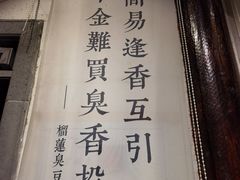 易逢香互引
金難買臭香投
——榴蓮臭豆